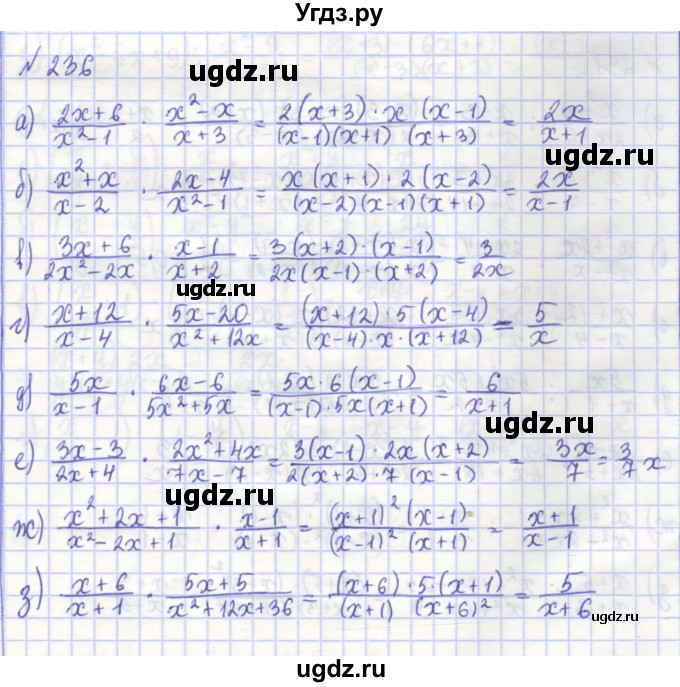 Угдз.ру
№ 236
ugdz.ru ugdz.ru
а) (2x+6)/(x²-1) · (x²-x)/(x+3) = (2(x+3)·x(x-1))/((x-1)(x+1)(x+3)) = 2x/(x+1)
ugdz.ru
б) (x²+x)/(x-2) · (2x-4)/(x²-1) = (x(x+1)·2(x-2))/((x-2)(x-1)(x+1)) = 2x/(x-1)
в) (3x+6)/(2x²-2x) · (x-1)/(x+2) = (3(x+2)·(x-1))/(2x(x-1)·(x+2)) = 3/(2x)
ugdz.ru
г) (x+12)/(x-4) · (5x-20)/(x²+12x) = ((x+12)·5(x-4))/((x-4)·x·(x+12)) = 5/x
д) 5x/(x-1) · (6x-6)/(5x²+5x) = (5x·6(x-1))/((x-1)·5x(x+1)) = 6/(x+1)
ugdz.ru
е) (3x-3)/(2x+4) · (2x²+4x)/(7x-7) = (3(x-1)·2x(x+2))/(2(x+2)·7(x-1)) = 3x/7 = 3/7 x
ugdz.ru
ж) (x²+2x+1)/(x²-2x+1) · (x-1)/(x+1) = ((x+1)²(x-1))/((x-1)²(x+1)) = (x+1)/(x-1)
ugdz.ru
з) (x+6)/(x+1) · (5x+5)/(x²+12x+36) = ((x+6)·5·(x+1))/((x+1)(x+6)²) = 5/(x+6)
ugdz.ru ugdz.ru
ugdz.ru